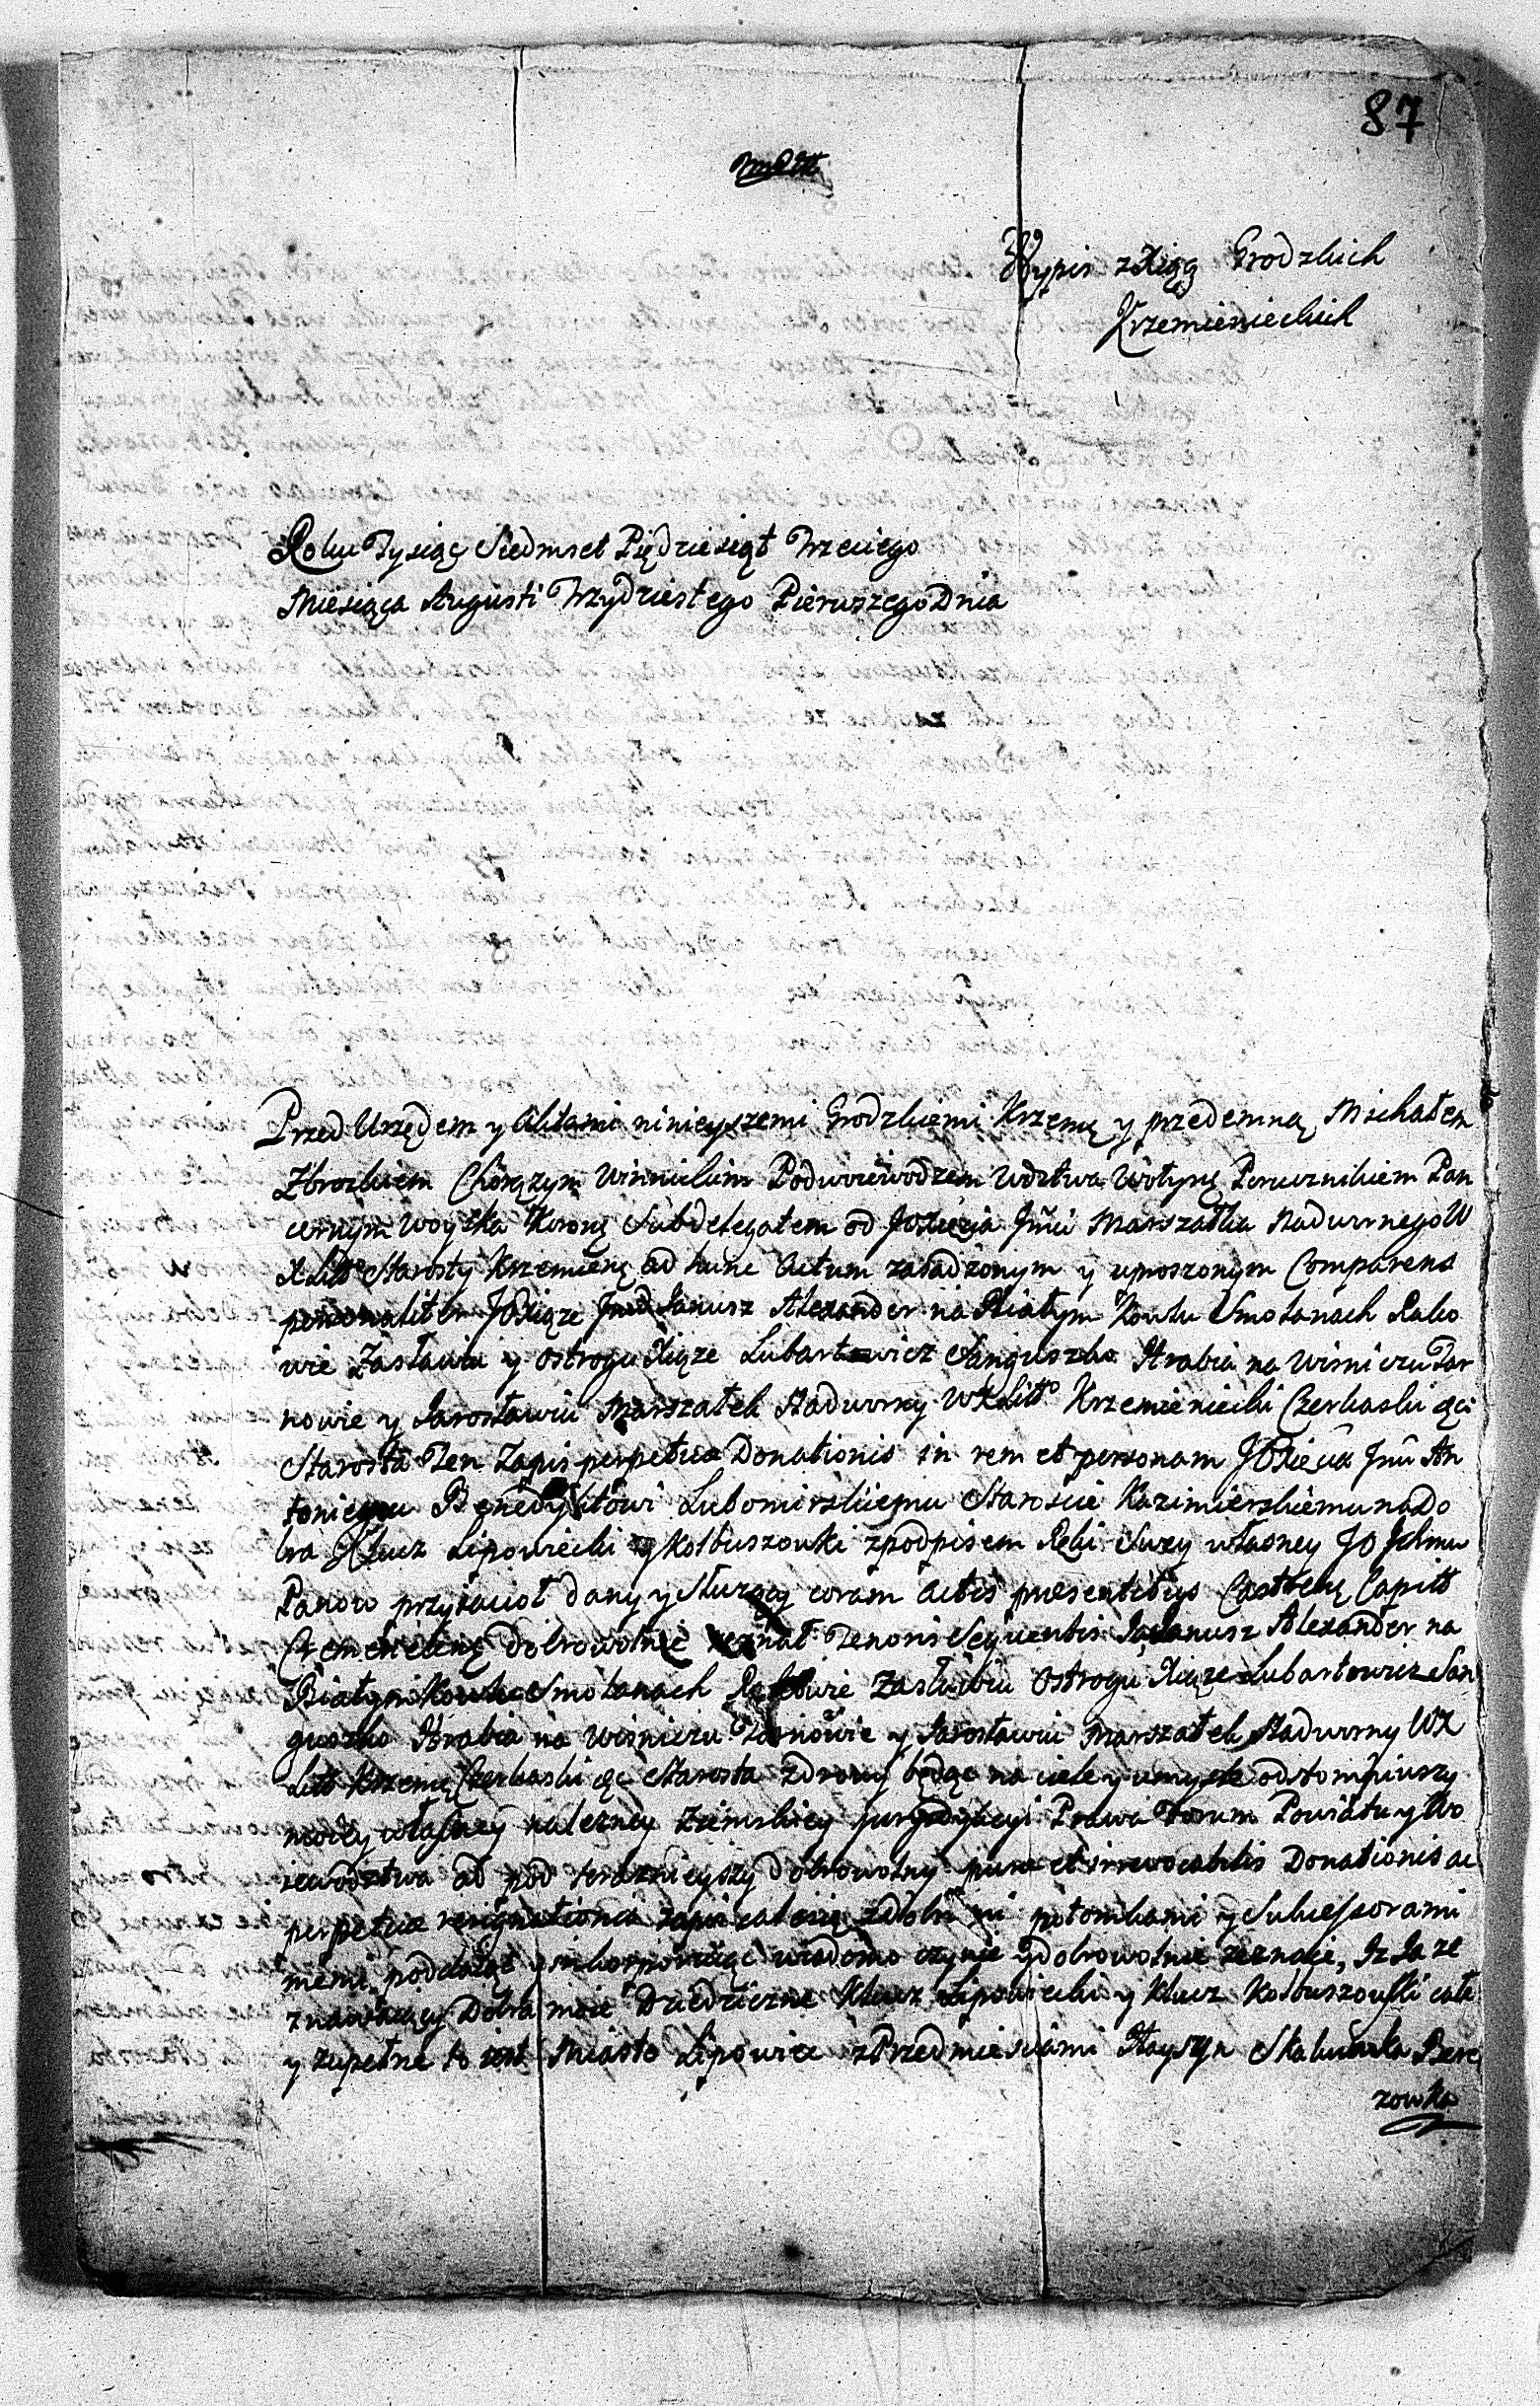 87
Wypis zXiąg Grodzkich
Krzemienieckich
Roku Tysiąc Siedmset Pięćdziesiąt Trzeciego
Miesiąca Augusti Trzydziestego Pierwszego Dnia
Przed Urzędem y Aktami ninieyszemi Grodzkiemi Krzemię y przedemną Michałem
Zbrozkiem Chorązym Winnickim Podwoiewodzem Wdztwa Wołynę Porucznikiem Pan
cernym Woyska Koronę Subdelegatem od JOXięcia Jmci Marszałka Nadwornego W
X Litto Starosty Krzemienę ad hunc Actum zasadzonym y uproszonym Comparens
personaliter JOXiąze Janusz Alexander na Białym Kowlu Smolanach Rako
wie Zasławiu y Ostrogu Xiąze Lubartowicz Sanguszko Hrabia na Wisniczu Tar
nowie y Jarosławiu Marszałek Nadworny WXLitto Krzemieniecki Czerkaski ęci
Starosta Ten Zapis perpetuæ Donationis in rem et personam JOXięciu Jmci An
toniemu Benedyktowi Lubomirskiemu Staroscie Kazimierskiemu na Do
bra Klucz Lipowiecki y Kolbuszowski zpodpisem Ręki Swey własney JO Ichmw
Panow przyiacioł dany y Słuzący coram Actis præsentibus Castrenę Capitt
Cremenecenę dobrowolnie zeznał Tenoris Sequentis Ja Janusz Alexander na
Białym Kowlu Smolanach Rakowie Zasławiu Ostrogu Xiąze Lubartowicz San
guszko Hrabia na Wisniczu Tarnowie y Jarosławiu Marszałek Nadworny WX
Litt Krzemię Czerkaski ęc Starosta zdrowy będąc na ciele y umysle odstompiwszy
moiey własney nalezney Ziemskiey jurysdykcyi Prawa Forum Powiatu y Wo
iewodztwa ad pod teraznieyszy dobrowolny puræ et irrevocabilis Donationis ac
perpetuæ resignationis zapis cale się zdobrami potomkami y Sukcessorami
memi poddaiąc y inkorporuiąc wiadomo czynie y dobrowolnie zeznaie, Iz Ja ze
znawaiący Dobra moie Dziedziczne Klucz Lipowiecki y Klucz Kolbuszowski całe
y zupełne to iest Miasto Lipowiec z Przedmiesciami Haysyn Skakunka Bere
zowka